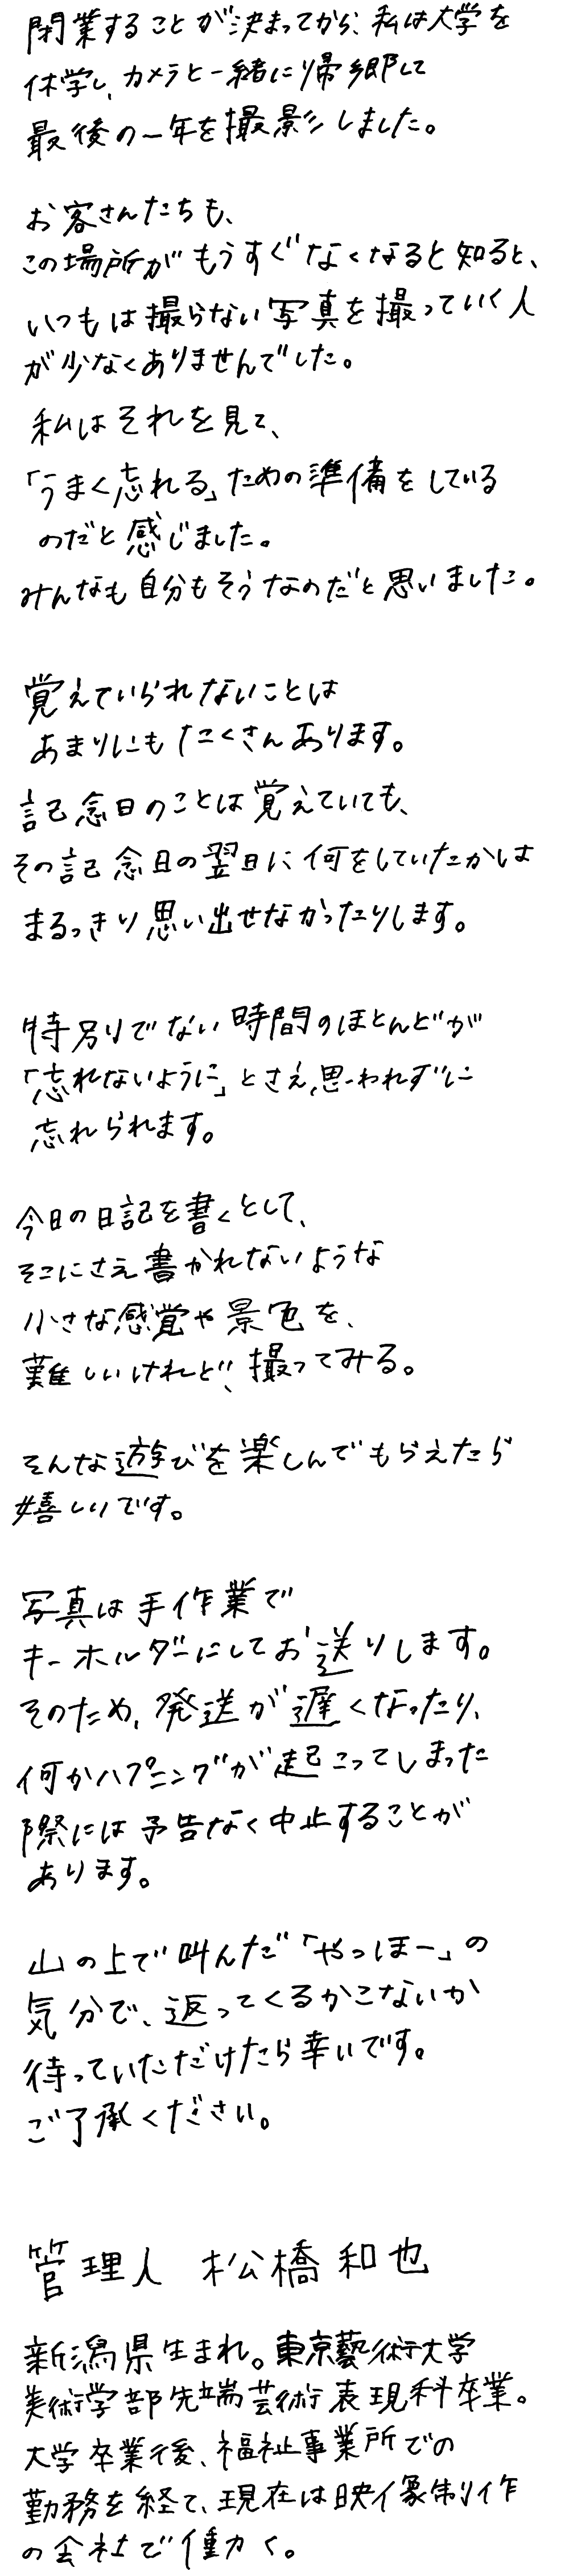 閉業することが決まってから、私は大学を
休学し、カメラと一緒に帰郷して
最後の一年を撮影しました。
お客さんたちも、
この場所がもうすぐなくなると知ると、
いつもは撮らない写真を撮っていく人
が少なくありませんでした。
私はそれを見て、
「うまく忘れる」ための準備をしている
のだと感じました。
みんなも自分もそうなのだと思いました。
覚えていられないことは
あまりにもたくさんあります。
記念日のことは覚えていても、
その記念日の翌日に何をしていたかは
まるっきり思い出せなかったりします。
特別でない時間のほとんどが
「忘れないように」とさえ、思われずに
忘れられます。
今日の日記を書くとして、
そこにさえ書かれないような
小さな感覚や景色を、
難しいけれど、撮ってみる。
そんな遊びを楽しんでもらえたら
嬉しいです。
写真は手作業で
キーホルダーにしてお送りします。
そのため、発送が遅くなったり、
何かハプニングが起こってしまった
際には予告なく中止することが
あります。
山の上で叫んだ「やっほー」の
気分で、返ってくるかこないか
待っていただけたら幸いです。
ご了承ください。
管理人 松橋和也
新潟県生まれ。東京藝術大学
美術学部先端芸術表現科卒業。
大学卒業後、福祉事業所での
勤務を経て、現在は映像制作
の会社で働く。